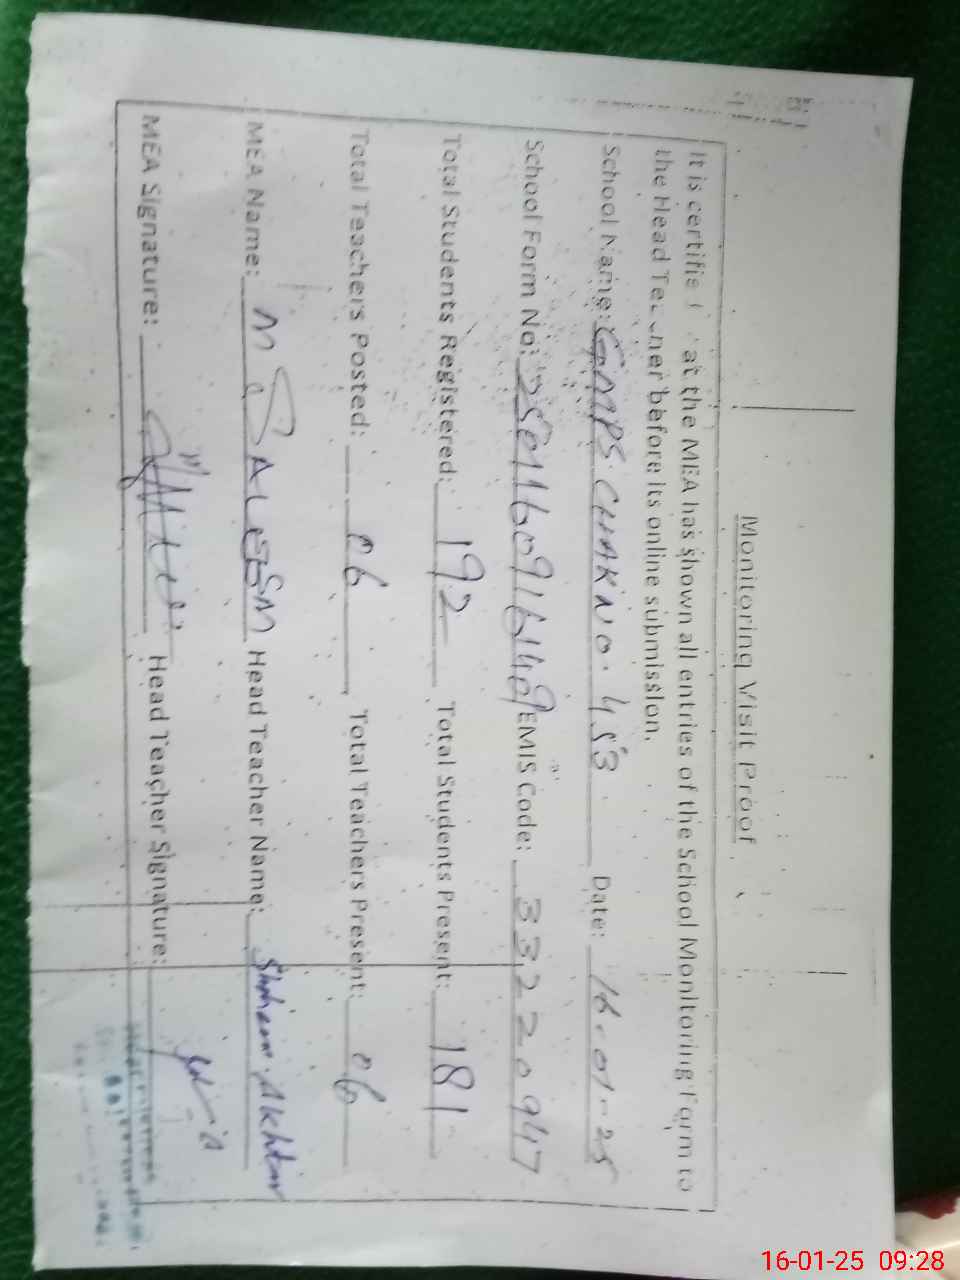 Monitoring Visit Proof
It is certified that the MEA has shown all entries of the School Monitoring Form to
the Head Teacher before its online submission.
School Name: GMPS CHAK NO. 453 Date: 16-01-25
School Form No: EMIS Code: 33220947
Total Students Registered: 192 Total Students Present: 181
Total Teachers Posted: 06 Total Teachers Present: 06
MEA Name: M. SALEEM Head Teacher Name: Shaheen Akhtar
MEA Signature: Head Teacher Signature:
16-01-25 09:28